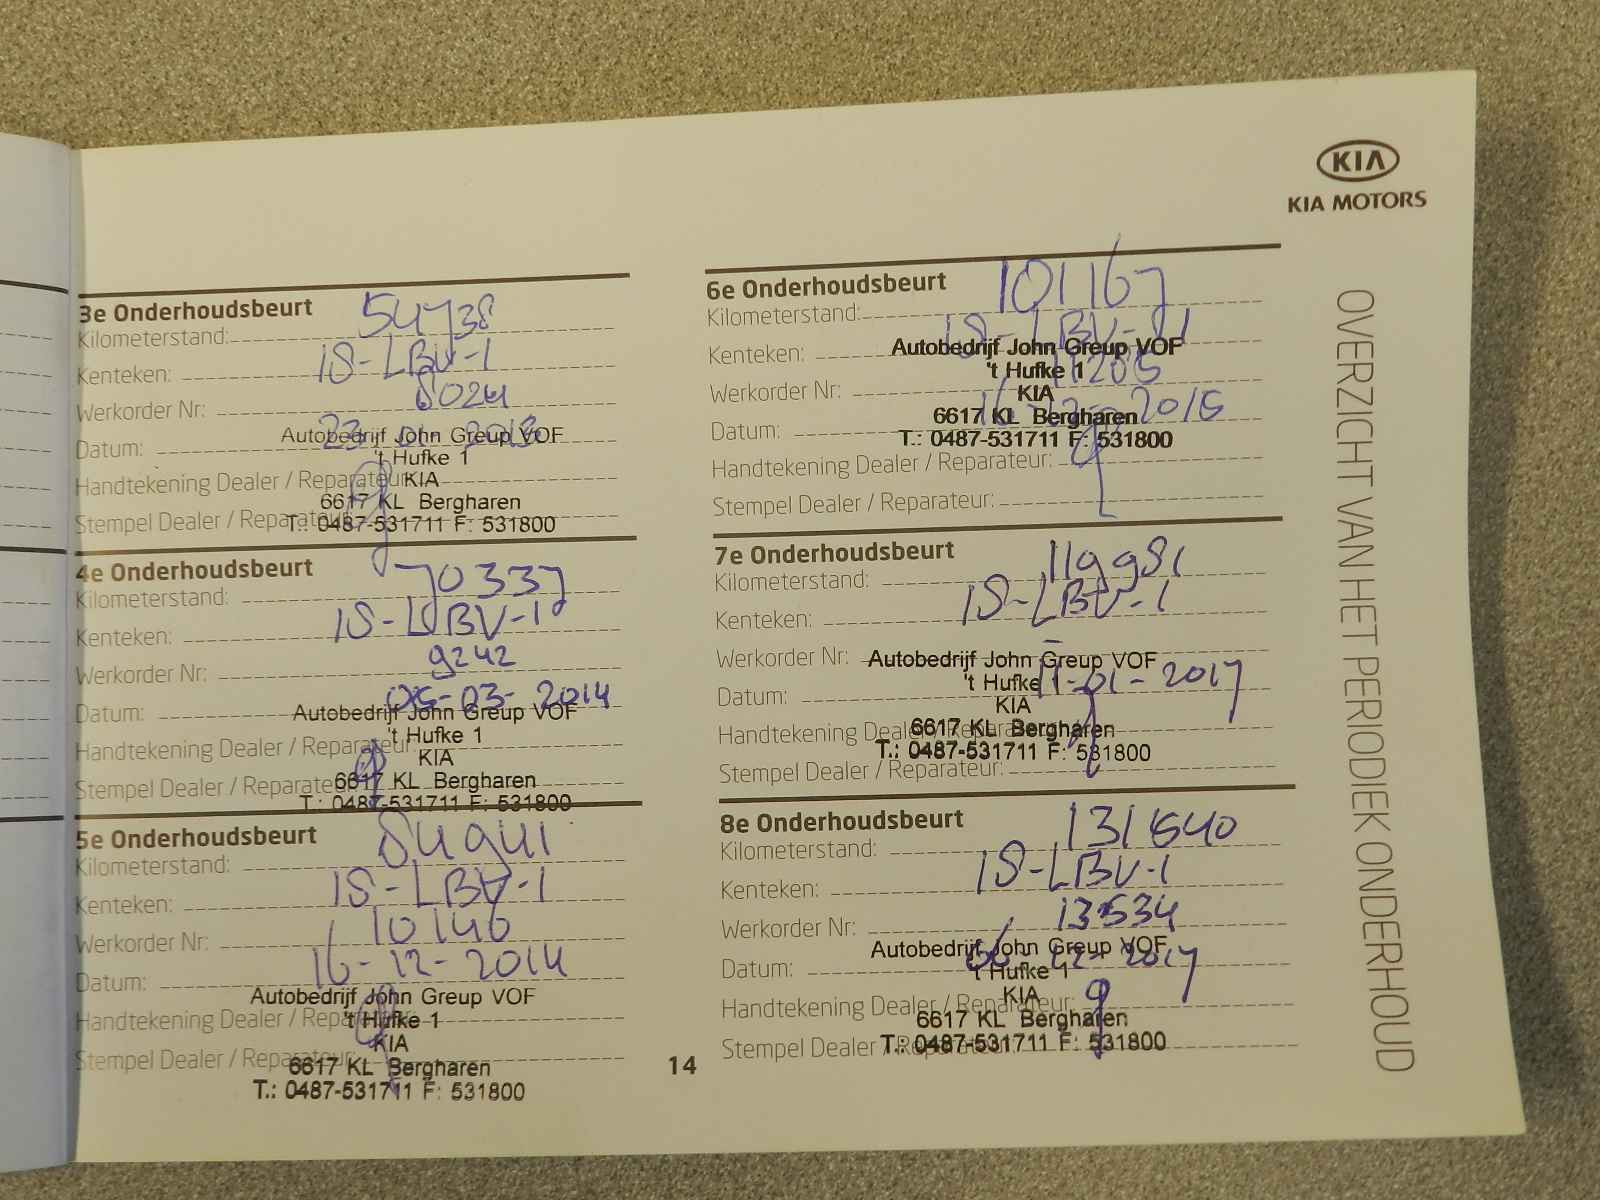 KIA
KIA MOTORS
OVERZICHT VAN HET PERIODIEK ONDERHOUD
3e Onderhoudsbeurt
Kilometerstand: 54738
Kenteken: 18-LBV-1
Werkorder Nr: 8024
Datum: 23-01-2013
Autobedrijf John Greup VOF
't Hufke 1
Handtekening Dealer / Reparateur:
KIA
6617 KL Bergharen
Stempel Dealer / Reparateur:
T.: 0487-531711 F: 531800
4e Onderhoudsbeurt
Kilometerstand: 70337
Kenteken: 18-LBV-1
Werkorder Nr: 9242
Datum: 05-03-2014
Autobedrijf John Greup VOF
't Hufke 1
Handtekening Dealer / Reparateur:
KIA
6617 KL Bergharen
Stempel Dealer / Reparateur:
T.: 0487-531711 F: 531800
5e Onderhoudsbeurt
Kilometerstand: 84941
Kenteken: 18-LBV-1
Werkorder Nr: 10146
Datum: 16-12-2014
Autobedrijf John Greup VOF
Handtekening Dealer / Reparateur:
't Hufke 1
KIA
Stempel Dealer / Reparateur:
6617 KL Bergharen
T.: 0487-531711 F: 531800
6e Onderhoudsbeurt
Kilometerstand: 101167
Kenteken: 18-LBV-1
Autobedrijf John Greup VOF
't Hufke 1
Werkorder Nr: 11205
KIA
6617 KL Bergharen
Datum: 16-12-2015
T.: 0487-531711 F: 531800
Handtekening Dealer / Reparateur:
Stempel Dealer / Reparateur:
7e Onderhoudsbeurt
Kilometerstand: 119981
Kenteken: 18-LBV-1
Werkorder Nr: -
Autobedrijf John Greup VOF
't Hufke 1
Datum: 11-01-2017
KIA
Handtekening Dealer / Reparateur:
6617 KL Bergharen
T.: 0487-531711 F: 531800
Stempel Dealer / Reparateur:
8e Onderhoudsbeurt
Kilometerstand: 131540
Kenteken: 18-LBV-1
Werkorder Nr: 13534
Autobedrijf John Greup VOF
Datum: 2017
't Hufke 1
KIA
Handtekening Dealer / Reparateur:
6617 KL Bergharen
Stempel Dealer / Reparateur:
T.: 0487-531711 F: 531800
14